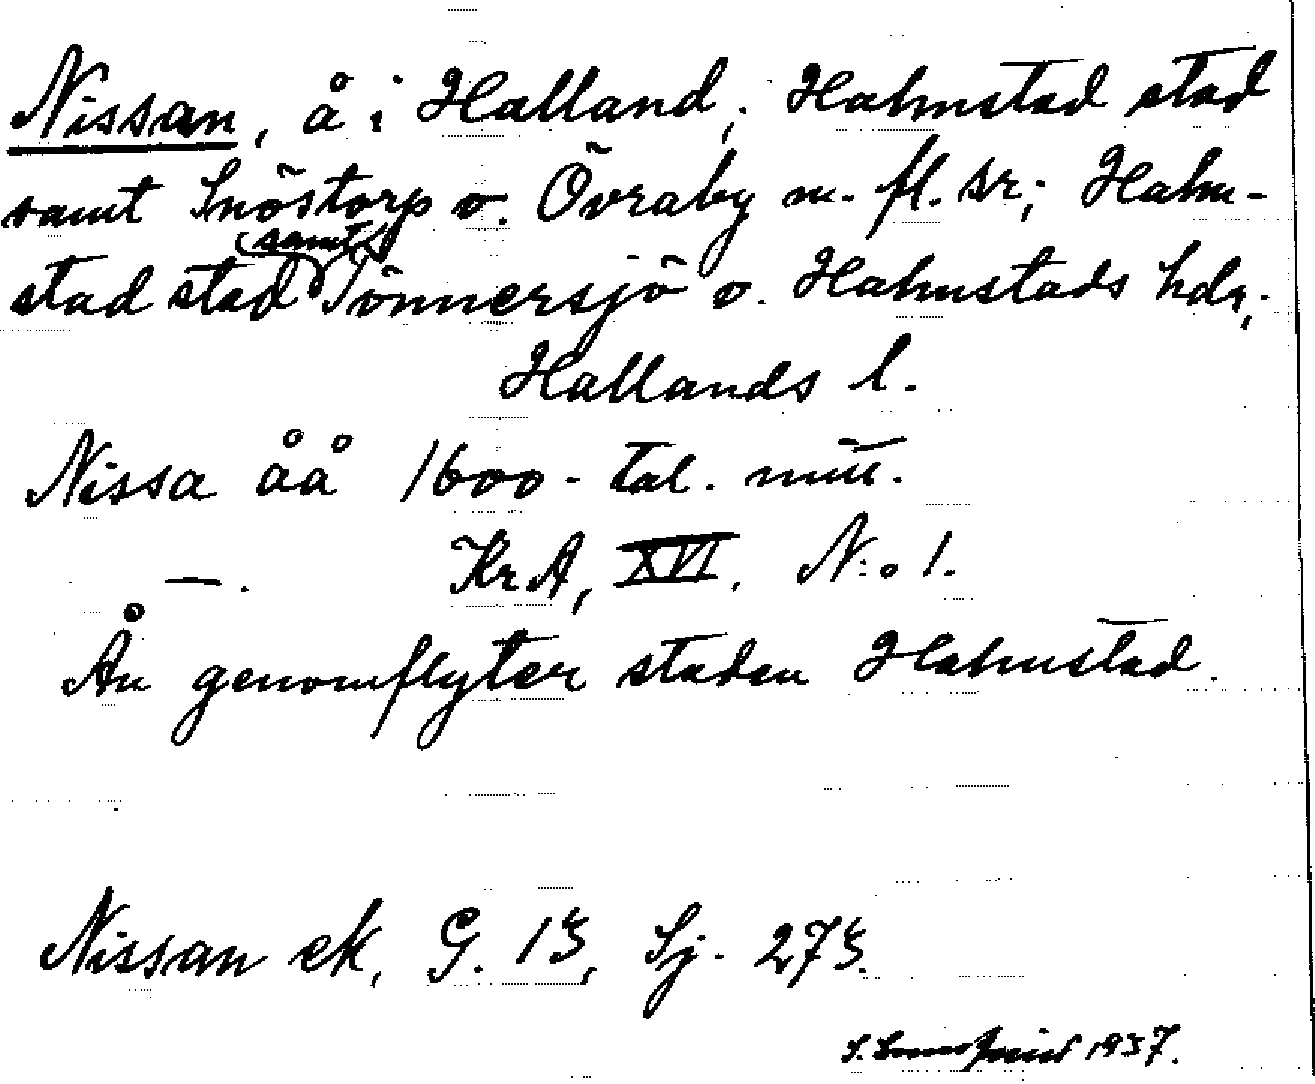 Nissan, å i Halland; Halmstad stad
samt Snöstorp o. Övraby m. fl. sr; Halm-
stad stad (samt) Tönnersjö o. Halmstads hdr;
Hallands l.
Nissa åå 1600-tal. mitt.
—. KrA, XVI. N:o 1.
Ån genomflyter staden Halmstad.
Nissan ek, G. 13, Sj. 273.
1937.